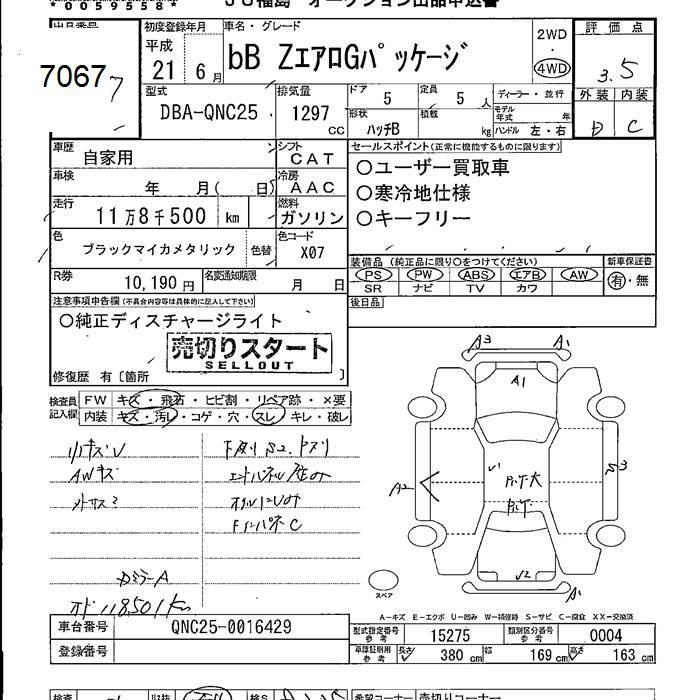 *0059558*
JU福島 オークション出品申込書
出品番号
7067
初度登録年月
平成
21年 6月
車名・グレード
bB ZエアロGパッケージ
2WD
4WD
評価点
3.5
型式
DBA-QNC25
排気量
1297
CC
ドア
5
定員
5人
ディーラー・並行
形状
ハッチB
積載
kg
モデル年式
年
ハンドル 左・右
外装 内装
D C
車歴
自家用
シフト
CAT
セールスポイント(正常に機能するものに限ります)
○ユーザー買取車
○寒冷地仕様
○キーフリー
車検
年 月( 日)
冷房
AAC
走行
11万8千500 km
燃料
ガソリン
色
ブラックマイカメタリック
色替
色コード
X07
R券
10,190円
名変通知期限
月 日
装備品 (純正品に限り○をつけてください)
PS PW ABS エアB AW
SR ナビ TV カワ
新車保証書
有・無
後日品
注意事項申告欄(不具合内容等は具体的に記入して下さい)
○純正ディスチャージライト
売切りスタート
SELLOUT
修復歴 有〔箇所 〕
検査員記入欄
FW キズ・飛石・ヒビ割・リペア跡・×要
内装 キズ・汚レ・コゲ・穴・スレ・キレ・破レ
小キズU
AWキズ
下廻りS2.
Fインパネ C
DミラーA
オド118501km
A3 A1
A1
A2
S3
U2
A1
スペア
A-キズ E-エクボ U-凹み W-補修跡 S-サビ C-腐食 XX-交換済
車台番号 QNC25-0016429
登録番号
型式指定番号 参考 15275
類別区分番号 参考 0004
車庫証明用 参考 長さ 380cm 幅 169cm 高さ 163cm
希望コーナー 売切りコーナー